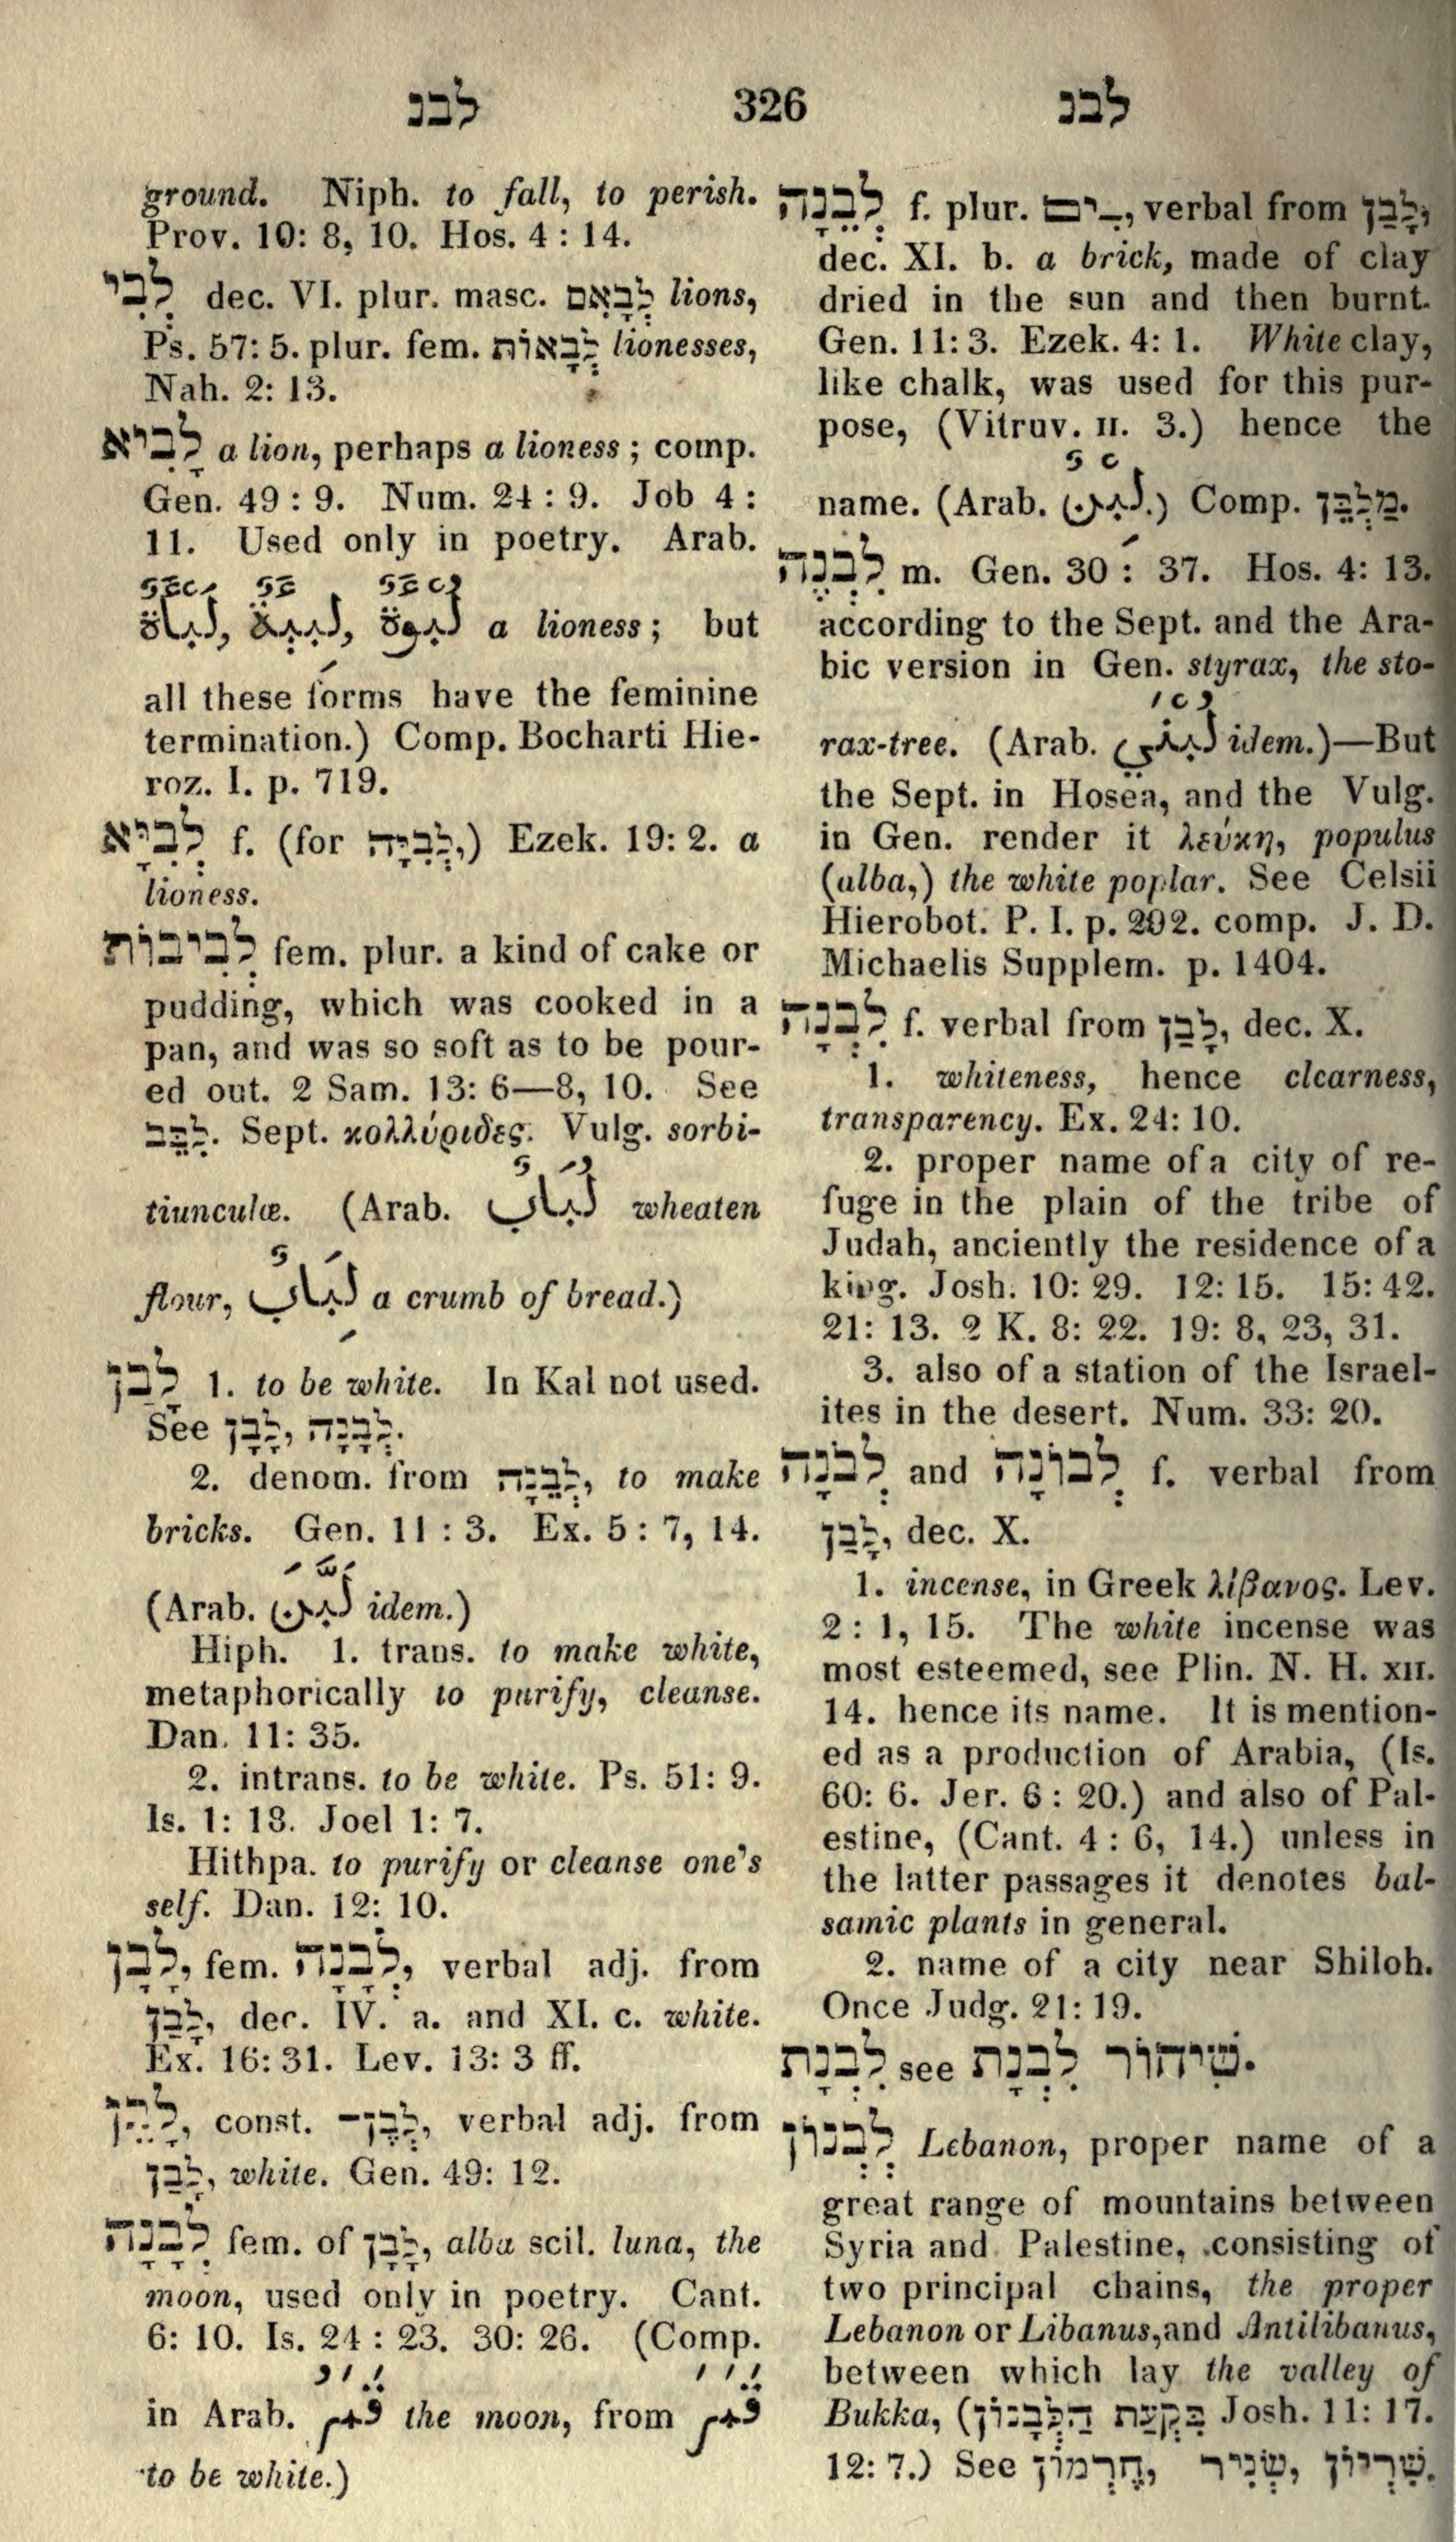 לבנ 326 לבנ
ground. Niph. to fall, to perish.
Prov. 10: 8, 10. Hos. 4 : 14.
לְבִי dec. VI. plur. masc. לְבָאִם lions,
Ps. 57: 5. plur. fem. לְבָאוֹת lionesses,
Nah. 2: 13.
לָבִיא a lion, perhaps a lioness ; comp.
Gen. 49 : 9. Num. 24 : 9. Job 4 :
11. Used only in poetry. Arab.
لَبُؤَةٌ, لَبِئَةٌ, لَبْأَةٌ a lioness ; but
all these forms have the feminine
termination.) Comp. Bocharti Hie-
roz. I. p. 719.
לְבִיָּא f. (for לְבִיָּה,) Ezek. 19: 2. a
lioness.
לְבִיבוֹת fem. plur. a kind of cake or
pudding, which was cooked in a
pan, and was so soft as to be pour-
ed out. 2 Sam. 13: 6—8, 10. See
לִבֵּב. Sept. κολλύριδες. Vulg. sorbi-
tiunculæ. (Arab. لُبَابٌ wheaten
flour, لَبَابٌ a crumb of bread.)
לָבַן 1. to be white. In Kal not used.
See לָבָן, לְבָנָה.
2. denom. from לְבֵנָה, to make
bricks. Gen. 11 : 3. Ex. 5 : 7, 14.
(Arab. لَبَّنَ idem.)
Hiph. 1. trans. to make white,
metaphorically to purify, cleanse.
Dan. 11: 35.
2. intrans. to be white. Ps. 51: 9.
Is. 1: 18. Joel 1: 7.
Hithpa. to purify or cleanse one's
self. Dan. 12: 10.
לָבָן, fem. לְבָנָה, verbal adj. from
לָבַן, dec. IV. a. and XI. c. white.
Ex. 16: 31. Lev. 13: 3 ff.
לָבֵן, const. לְבֶן־, verbal adj. from
לָבַן, white. Gen. 49: 12.
לְבָנָה fem. of לָבָן, alba scil. luna, the
moon, used only in poetry. Cant.
6: 10. Is. 24 : 23. 30: 26. (Comp.
in Arab. قَمَرُ the moon, from قَمَرَ
to be white.)
לְבֵנָה f. plur. ־ִים, verbal from לָבַן,
dec. XI. b. a brick, made of clay
dried in the sun and then burnt.
Gen. 11: 3. Ezek. 4: 1. White clay,
like chalk, was used for this pur-
pose, (Vitruv. II. 3.) hence the
name. (Arab. لَبِنٌ.) Comp. מַלְבֵּן.
לִבְנֶה m. Gen. 30 : 37. Hos. 4: 13.
according to the Sept. and the Ara-
bic version in Gen. styrax, the sto-
rax-tree. (Arab. لُبْنَى idem.)—But
the Sept. in Hosea, and the Vulg.
in Gen. render it λεύκη, populus
(alba,) the white poplar. See Celsii
Hierobot. P. I. p. 292. comp. J. D.
Michaelis Supplem. p. 1404.
לִבְנָה f. verbal from לָבַן, dec. X.
1. whiteness, hence clearness,
transparency. Ex. 24: 10.
2. proper name of a city of re-
fuge in the plain of the tribe of
Judah, anciently the residence of a
king. Josh. 10: 29. 12: 15. 15: 42.
21: 13. 2 K. 8: 22. 19: 8, 23, 31.
3. also of a station of the Israel-
ites in the desert. Num. 33: 20.
לְבֹנָה and לְבוֹנָה f. verbal from
לָבַן, dec. X.
1. incense, in Greek λίβανος. Lev.
2 : 1, 15. The white incense was
most esteemed, see Plin. N. H. XII.
14. hence its name. It is mention-
ed as a production of Arabia, (Is.
60: 6. Jer. 6 : 20.) and also of Pal-
estine, (Cant. 4 : 6, 14.) unless in
the latter passages it denotes bal-
samic plants in general.
2. name of a city near Shiloh.
Once Judg. 21: 19.
לִבְנָת see שִׁיחוֹר לִבְנָת.
לְבָנוֹן Lebanon, proper name of a
great range of mountains between
Syria and Palestine, consisting of
two principal chains, the proper
Lebanon or Libanus, and Antilibanus,
between which lay the valley of
Bukka, (בִּקְעַת הַלְּבָנוֹן Josh. 11: 17.
12: 7.) See חֶרְמוֹן, שְׂנִיר, שִׁרְיוֹן.